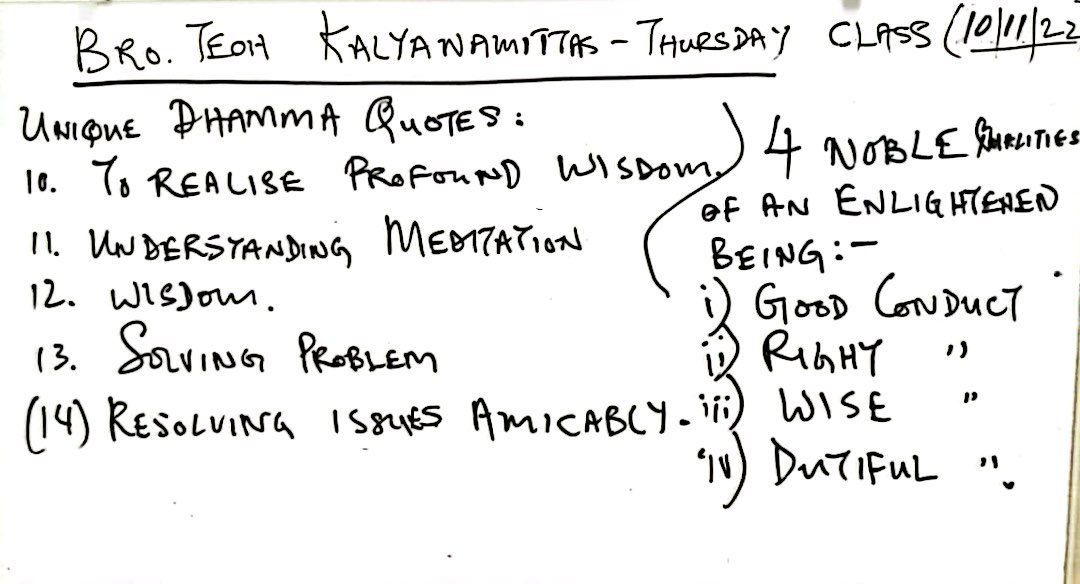 BRO. TEOH KALYANAMITTAS - THURSDAY CLASS (10/11/22
UNIQUE DHAMMA QUOTES :
10. TO REALISE PROFOUND WISDOM.
11. UNDERSTANDING MEDITATION
12. WISDOM.
13. SOLVING PROBLEM
(14) RESOLVING ISSUES AMICABLY.
4 NOBLE QUALITIES
OF AN ENLIGHTENED
BEING :-
i) GOOD CONDUCT
ii) RIGHT "
iii) WISE "
iv) DUTIFUL ".